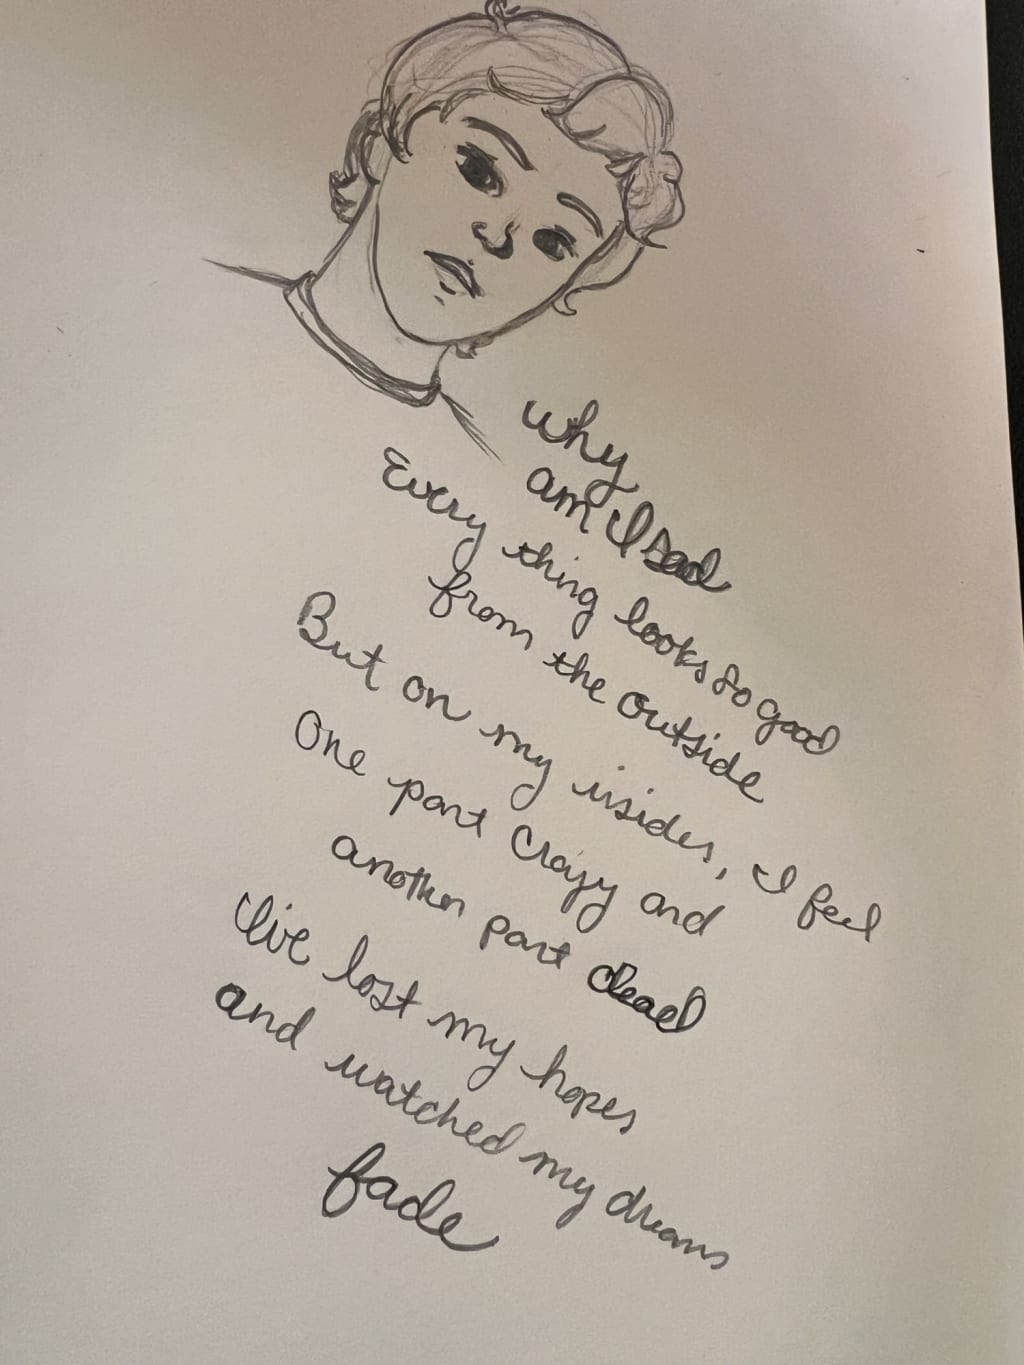 why
am I sad
Every thing looks so good
from the outside
But on my insides, I feel
One part Crazy and
another part dead
I've lost my hopes
and watched my dreams
fade